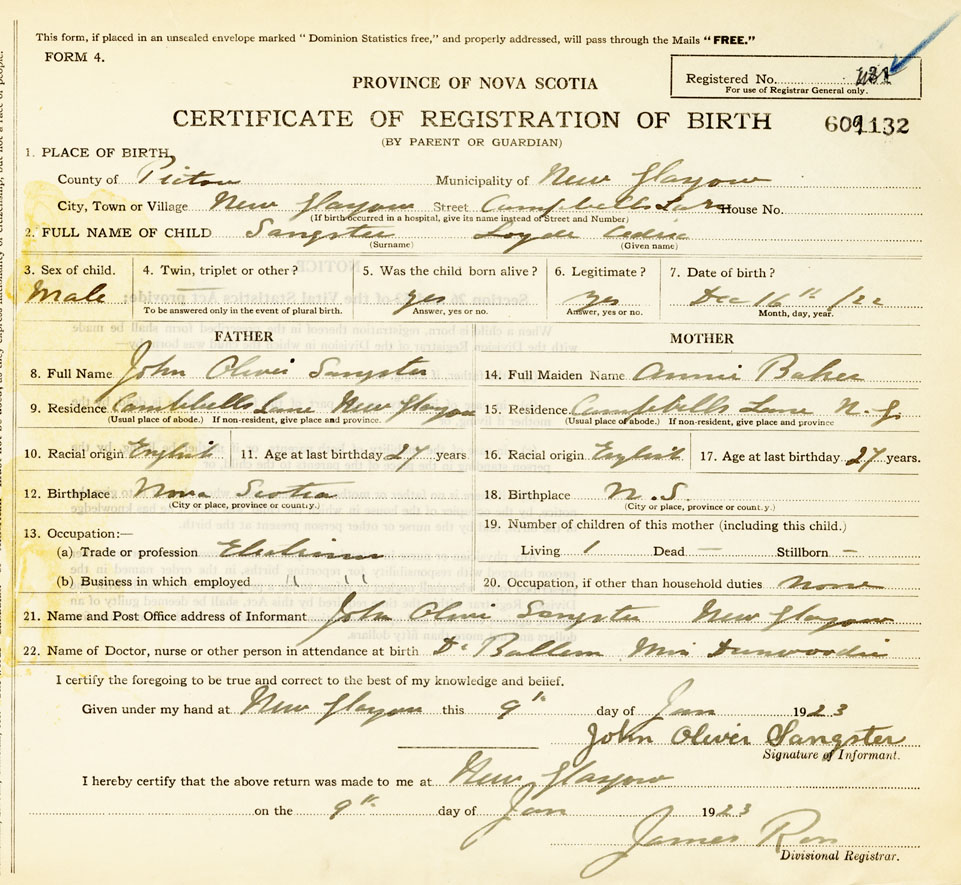 This form, if placed in an unsealed envelope marked "Dominion Statistics free," and properly addressed, will pass through the Mails "FREE."
FORM 4.
PROVINCE OF NOVA SCOTIA
Registered No.
For use of Registrar General only.
CERTIFICATE OF REGISTRATION OF BIRTH
(BY PARENT OR GUARDIAN)
1. PLACE OF BIRTH
County of Pictou Municipality of New Glasgow
City, Town or Village New Glasgow Street Campbells Lane House No.
(If birth occurred in a hospital, give its name instead of Street and Number)
2. FULL NAME OF CHILD Sangster Loyde Cedric
(Surname) (Given name)
3. Sex of child. 4. Twin, triplet or other? 5. Was the child born alive? 6. Legitimate? 7. Date of birth?
Male — yes yes Dec 16th /22
To be answered only in the event of plural birth. Answer, yes or no. Answer, yes or no. Month, day, year.
FATHER MOTHER
8. Full Name John Oliver Sangster 14. Full Maiden Name Annie Baker
9. Residence Campbells Lane New Glasgow 15. Residence Campbells Lane N. G.
(Usual place of abode.) If non-resident, give place and province. (Usual place of abode.) If non-resident, give place and province
10. Racial origin English 11. Age at last birthday 27 years 16. Racial origin English 17. Age at last birthday 27 years.
12. Birthplace Nova Scotia 18. Birthplace N.S.
(City or place, province or county.) (City or place, province or county.)
13. Occupation:— 19. Number of children of this mother (including this child.)
(a) Trade or profession Living 1 Dead — Stillborn —
(b) Business in which employed " " 20. Occupation, if other than household duties None
21. Name and Post Office address of Informant John Oliver Sangster New Glasgow
22. Name of Doctor, nurse or other person in attendance at birth Dr Ballem Miss Dunwoodie
I certify the foregoing to be true and correct to the best of my knowledge and belief.
Given under my hand at New Glasgow this 9th day of Jan 1923
John Oliver Sangster
Signature of Informant.
I hereby certify that the above return was made to me at New Glasgow
on the 9th day of Jan 1923
James Ross
Divisional Registrar.